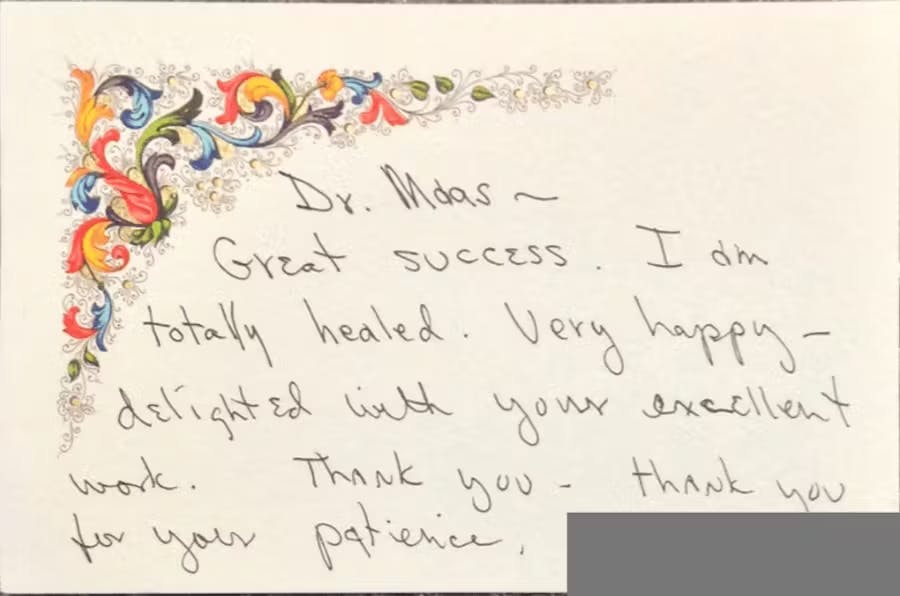 Dr. Maas ~
Great success. I am
totally healed. Very happy –
delighted with your excellent
work. Thank you - thank you
for your patience.